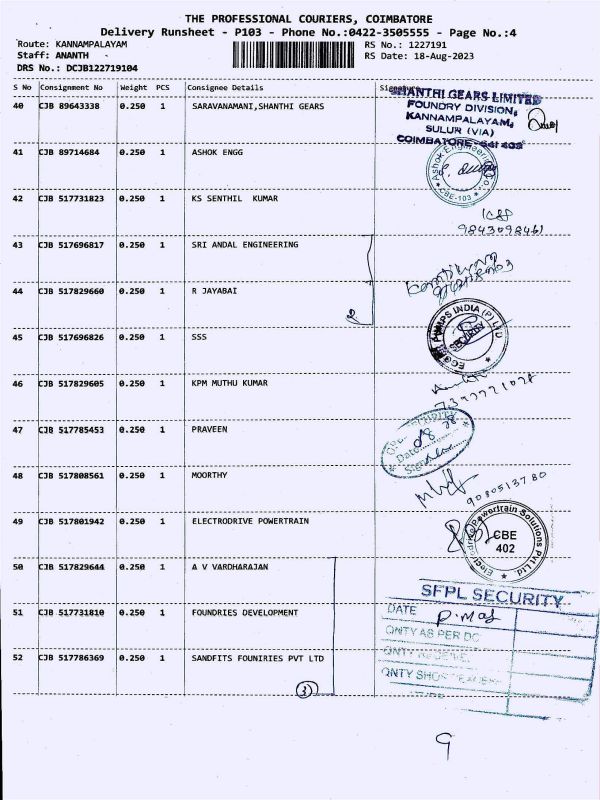 THE PROFESSIONAL COURIERS, COIMBATORE
Delivery Runsheet - P103 - Phone No.:0422-3505555 - Page No.:4
Route: KANNAMPALAYAM RS No.: 1227191
Staff: ANANTH - RS Date: 18-Aug-2023
DRS No.: DCJB122719104
S No Consignment No Weight PCS Consignee Details Signature
40 CJB 89643338 0.250 1 SARAVANAMANI,SHANTHI GEARS
SHANTHI GEARS LIMITED
FOUNDRY DIVISION,
KANNAMPALAYAM,
SULUR (VIA)
COIMBATORE - 641 402
41 CJB 89714684 0.250 1 ASHOK ENGG
Ashok Engineering Co.
CBE-103
42 CJB 517731823 0.250 1 KS SENTHIL KUMAR
9843098461
43 CJB 517696817 0.250 1 SRI ANDAL ENGINEERING
44 CJB 517829660 0.250 1 R JAYABAI
2
45 CJB 517696826 0.250 1 SSS
PUMPS INDIA (P) LTD
SECURITY
46 CJB 517829605 0.250 1 KPM MUTHU KUMAR
47 CJB 517785453 0.250 1 PRAVEEN
SECURITY
Date
Sign
48 CJB 517808561 0.250 1 MOORTHY
9080513780
49 CJB 517801942 0.250 1 ELECTRODRIVE POWERTRAIN
Electrodrive Powertrain Solutions Pvt Ltd
CBE
402
50 CJB 517829644 0.250 1 A V VARDHARAJAN
SFPL SECURITY
51 CJB 517731810 0.250 1 FOUNDRIES DEVELOPMENT
DATE
QNTY AS PER DC
52 CJB 517786369 0.250 1 SANDFITS FOUNIRIES PVT LTD
QNTY
QNTY
3
9